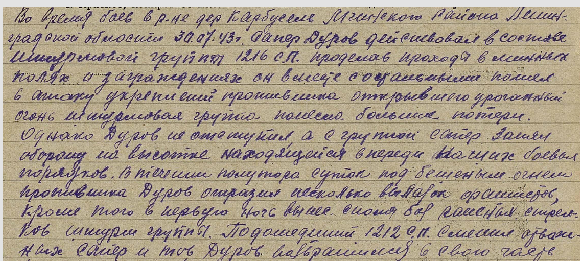 Во время боев в р-не дер Карбусель Мгинского района Ленин-
градской области 30.07.43г. Сапер Дуров действовал в составе
штурмовой группы 1216 С.П. проделав проходы в минных
полях и заграждениях он вместе с остальными пошел
в атаку укреплений противника открывшего ураганный
огонь штурмовая группа понесла большие потери.
Однако Дуров не отступил а с группой сапер занял
оборону на высотке находящейся впереди наших боевых
порядков. В течении полутора суток под бешеным огнем
противника Дуров отразил несколько вылазок фашистов,
кроме того в первую ночь вынес с поля боя раненых стрел-
ков штурм группы. Подошедший 1212 С.П. сменил отваж-
ных сапер и тов Дуров возвратился в свою часть